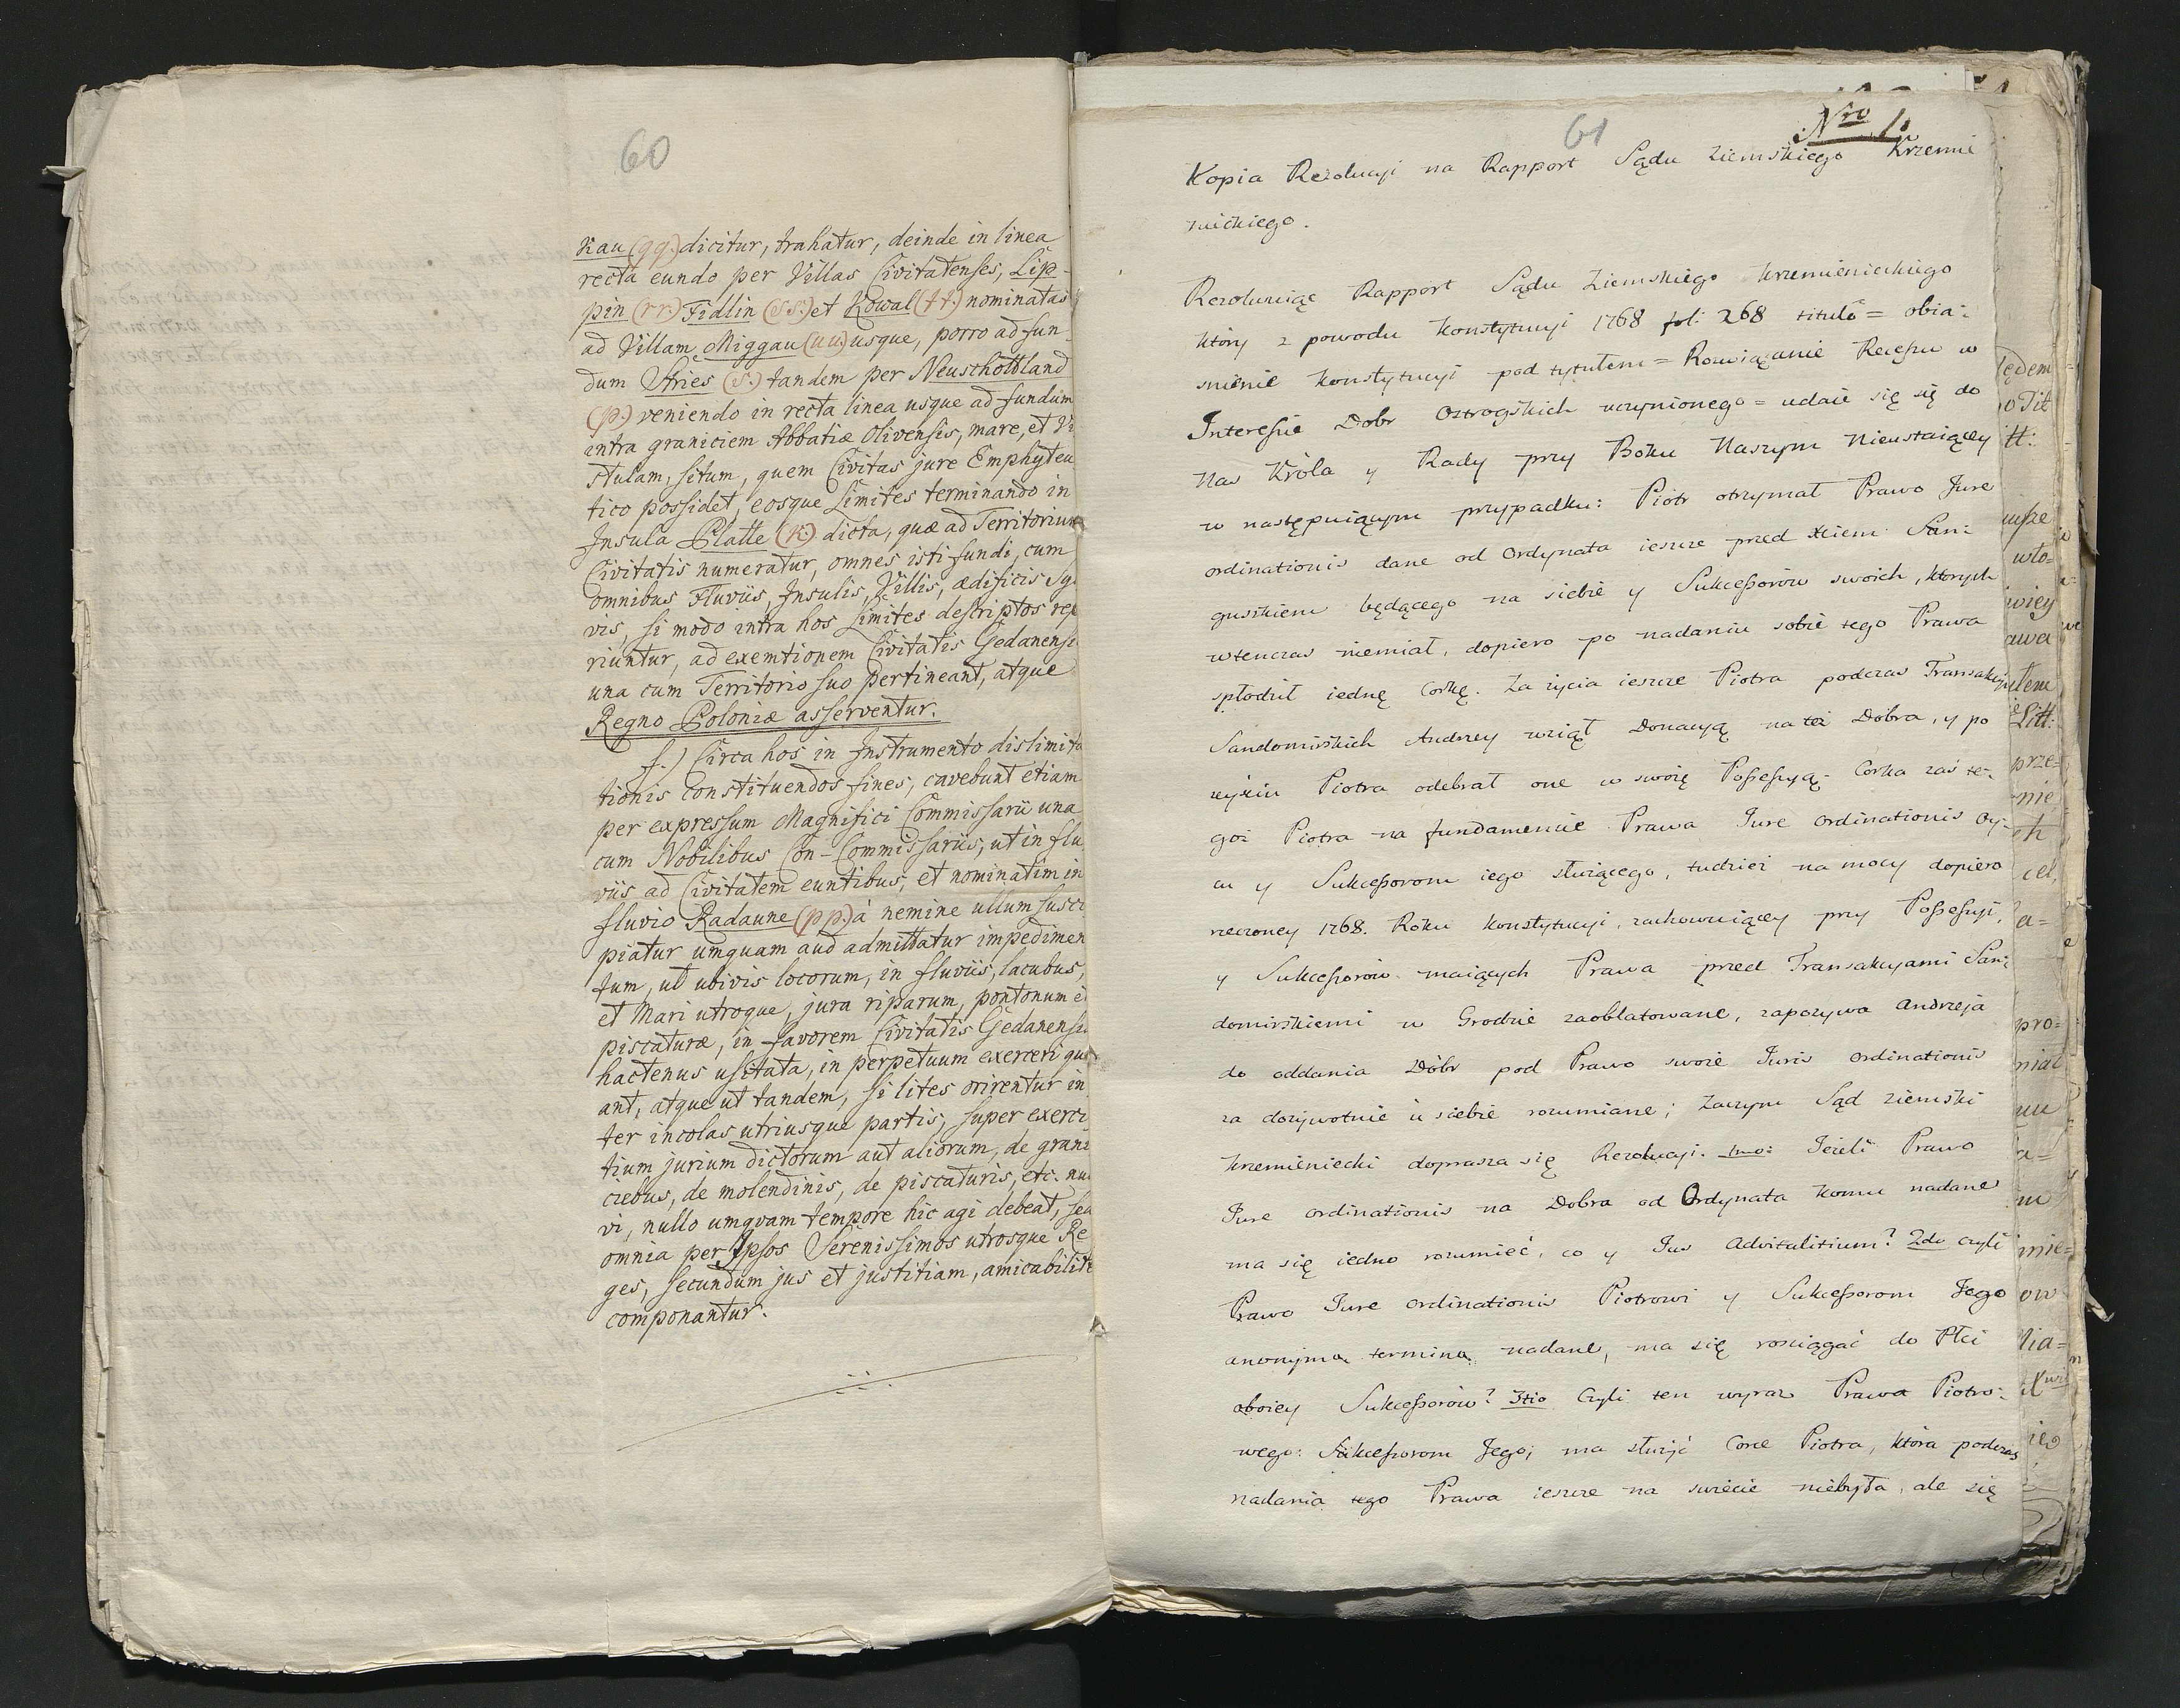 60
Kau (qq.) dicitur, trahatur, deinde in linea
recta eundo per Villas Civitatenses, Lip-
pin (rr.) Fidlin (ss.) et Kowal (tt.) nominatas
ad Villam Miggau (uu.) usque, porro ad fun-
dum Stries (s.) tandem per Neuschottland
(p.) veniendo in recta linea usque ad fundum
intra graniciem Abbatiæ Olivensis, mare, et Vi
stulam, situm, quem Civitas jure Emphyteu
tico possidet, eosque Limites terminando in
Insula Platte (k.) dicta, quæ ad Territorium
Civitatis numeratur, omnes isti fundi, cum
omnibus Fluviis, Insulis, Villis, ædificis
vis, si modo intra hos Limites descriptos repe
riuntur, ad exemtionem Civitatis Gedanensi
una cum Territorio suo pertineant, atque
Regno Poloniæ asserventur.
f.) Circa hos in Instrumento dislimita
tionis constituendos fines, cavebunt etiam
per expressum Magnifici Commissarii una
cum Nobilibus Con-Commissariis, ut in flu
viis ad Civitatem euntibus, et nominatim in
fluvio Radaune (pp.) à nemine ullum susci
piatur umquam aud admittatur impedimen
tum, ut ubivis locorum, in fluviis, lacubus,
et Mari utroque, jura riparum, pontonum e
piscaturæ, in favorem Civitatis Gedanensi
hactenus usitata, in perpetuum exerceri que
ant, atque ut tandem, si lites orirentur in
ter incolas utriusque partis, super exerci
tium jurium dictorum aut aliorum, de grani
ciebus, de molendinis, de piscaturis, etc. nu
vi, nullo umqvam tempore hic agi debeat, sed
omnia per Ipsos Serenissimos utrosque Re
ges, secundum jus et justitiam, amicabilite
componantur.
61
Nro 1.
Kopia Rezolucyi na Rapport Sądu Ziemskiego Krzemie
nieckiego.
Rezolwuiąc Rapport Sądu Ziemskiego Krzemienieckiego
który z powodu Konstytucyi 1768 fol: 268 titulo = obia=
snienie Konstytucyi pod tytułem = Rozwiązanie Recessu w
Interessie Dobr Ostrogskich uczynionego = udaie się się do
Nas Króla y Rady przy Boku Naszym Nieustaiącey
w następuiącym przypadku: Piotr otrzymał Prawo Jure
ordinationis dane od Ordynata ieszcze przed Xciem San=
guszkiem będącego na siebie y Sukcessorów swoich, których
wtenczas niemiał, dopiero po nadaniu sobie tego Prawa
spłodził iednę Corkę. Za życia ieszcze Piotra podczas Transakcyi
Sandomirskich Andrzey wziął Donacyą na też Dobra, y po
zeyściu Piotra odebrał one w swoię Possessyą. Corka zaś te=
goż Piotra na fundamencie Prawa Jure ordinationis Oy=
cu y Sukcessorom iego służącego, tudzież na mocy dopiero
rzeczoney 1768. Roku Konstytucyi, zachowuiącey przy Possessyi,
y Sukcessorów maiących Prawa przed Transakcyami San=
domirskiemi w Grodzie zaoblatowane, zapozywa Andrzeja
do oddania Dóbr pod Prawo swoie Juris ordinationis
za dożywotnie u siebie rozumiane; Zaczym Sąd Ziemski
Krzemieniecki doprasza się Rezolucyi. 1mo: Jeżeli Prawo
Jure ordinationis na Dobra od Ordynata komu nadane
ma się iedno rozumieć, co y Jus Advitalitium? 2do czyli
Prawo Jure ordinationis Piotrowi y Sukcessorom Jego
anonyma termina nadane, ma się rosciągać do Płci
oboiey Sukcessorów? 3tio Czyli ten wyraz Prawa Piotro=
wego: Sukcessorom Jego; ma służyć Corce Piotra, która podczas
nadania tego Prawa ieszcze na swiecie niebyła, ale się